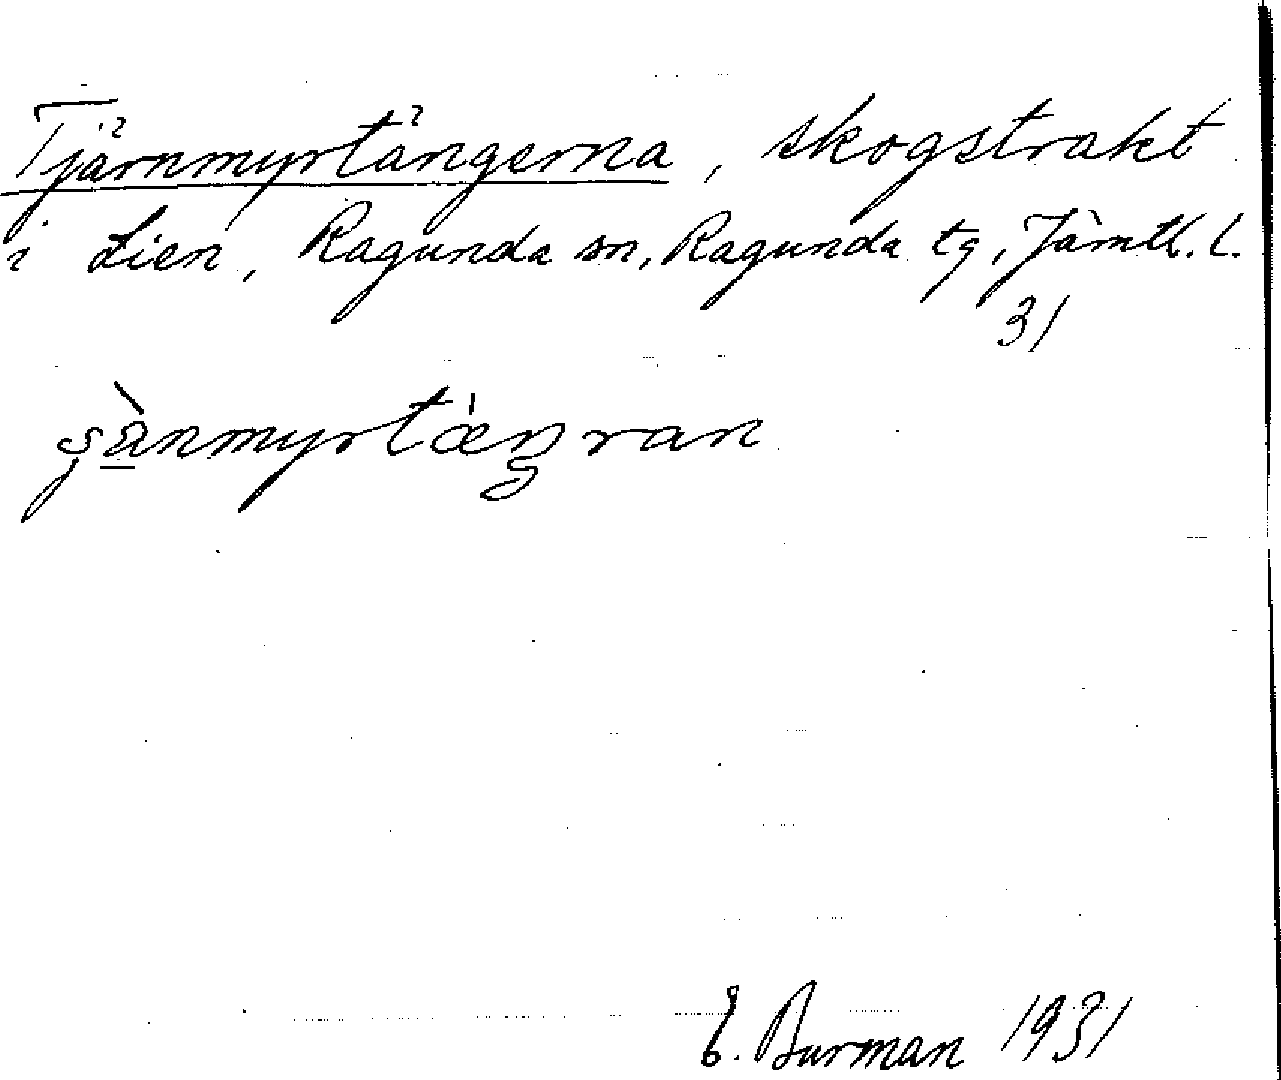 Tjärnmyrtängerna, skogstrakt
i Lien, Ragunda sn, Ragunda tg, Jämtl. l.
31
E. Burman 1931